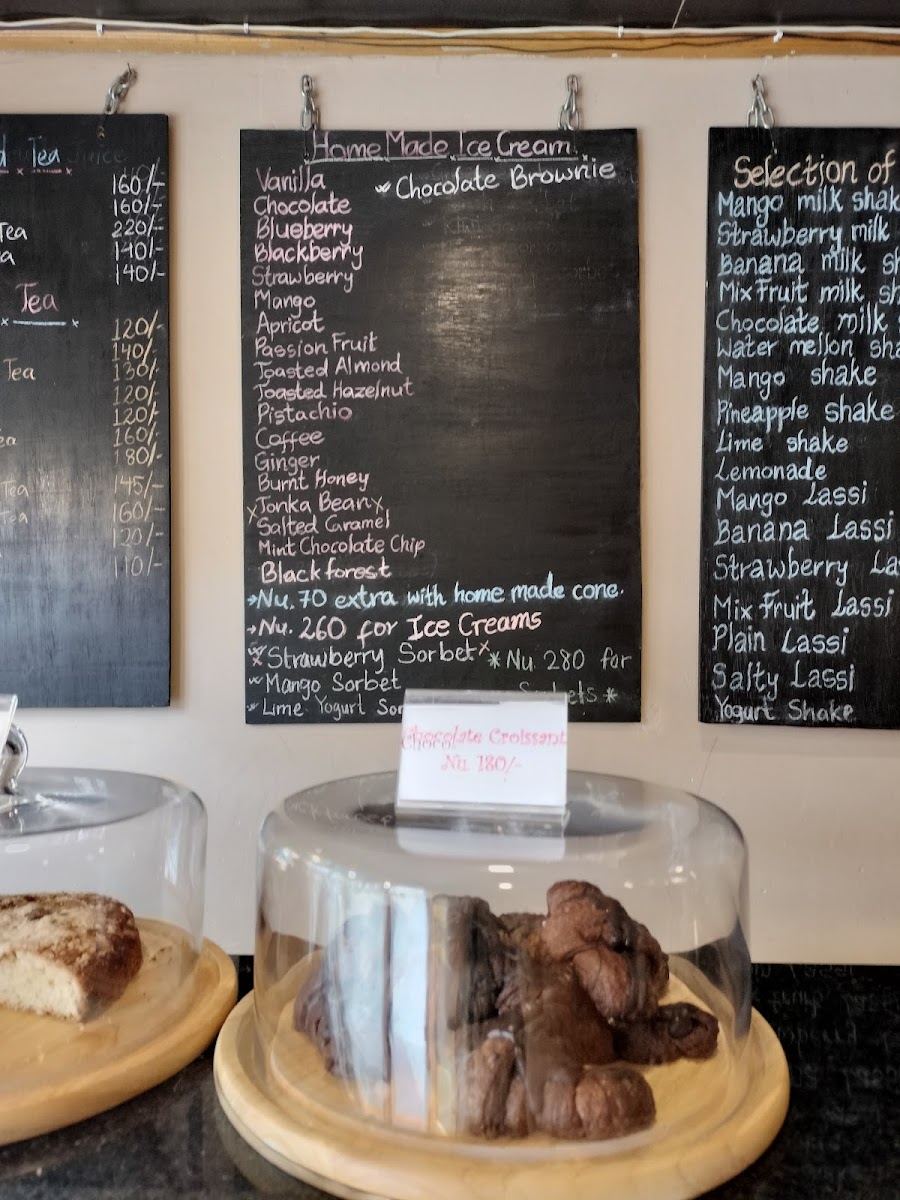 Tea
160/-
160/-
Tea 220/-
140/-
140/-
Tea
120/-
140/-
Tea 130/-
120/-
120/-
160/-
180/-
Tea 145/-
Tea 160/-
120/-
110/-
Home Made Ice Cream
Vanilla
Chocolate Brownie
Chocolate
Blueberry
Blackberry
Strawberry
Mango
Apricot
Passion Fruit
Toasted Almond
Toasted Hazelnut
Pistachio
Coffee
Ginger
Burnt Honey
x Tonka Bean x
Salted Caramel
Mint Chocolate Chip
Black forest
→Nu. 70 extra with home made cone.
→Nu. 260 for Ice Creams
Strawberry Sorbet x *Nu 280 for
Mango Sorbet
Lime Yogurt
Selection of
Mango milk
Strawberry milk
Banana milk
Mix Fruit milk
Chocolate milk
Water mellon
Mango shake
Pineapple shake
Lime shake
Lemonade
Mango Lassi
Banana Lassi
Strawberry
Mix Fruit Lassi
Plain Lassi
Salty Lassi
Yogurt Shake
Chocolate Croissant
Nu. 180/-